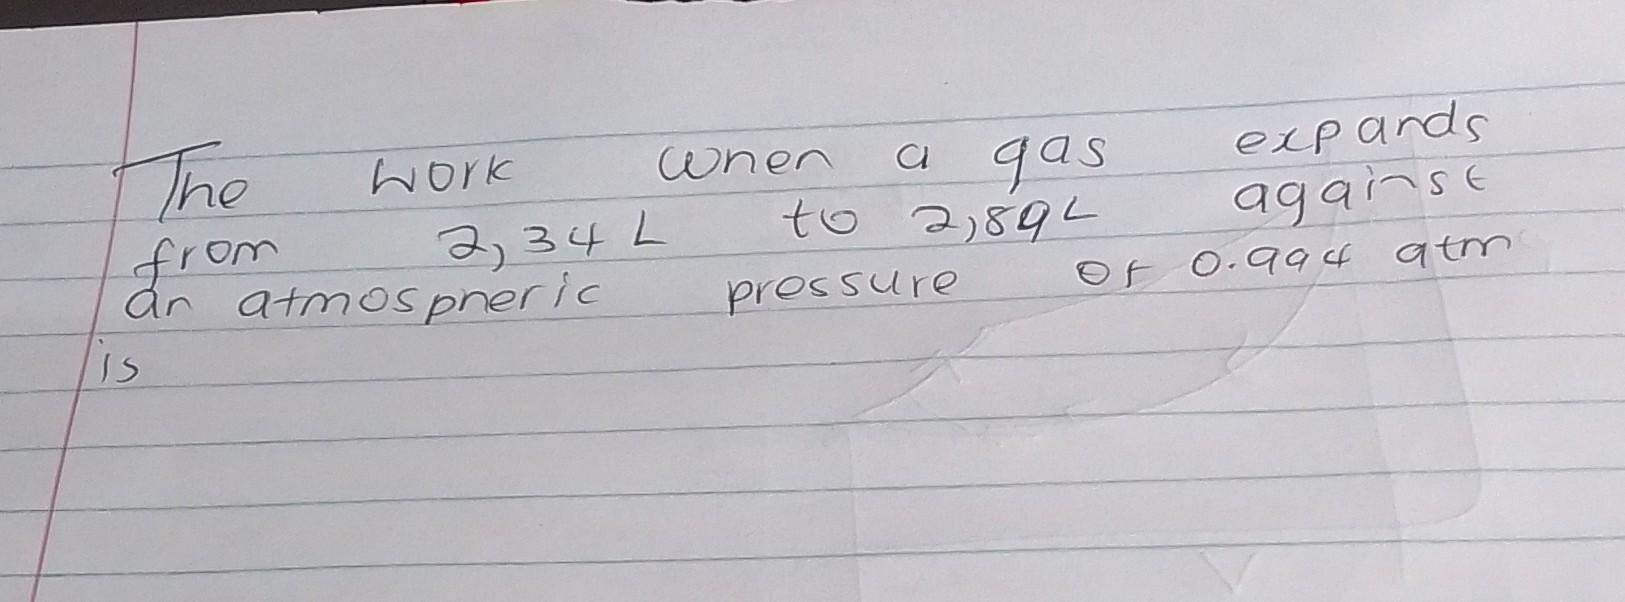 The work when a gas expands
from 2,34 L to 2,89L against
an atmospheric pressure of 0.994 atm
is